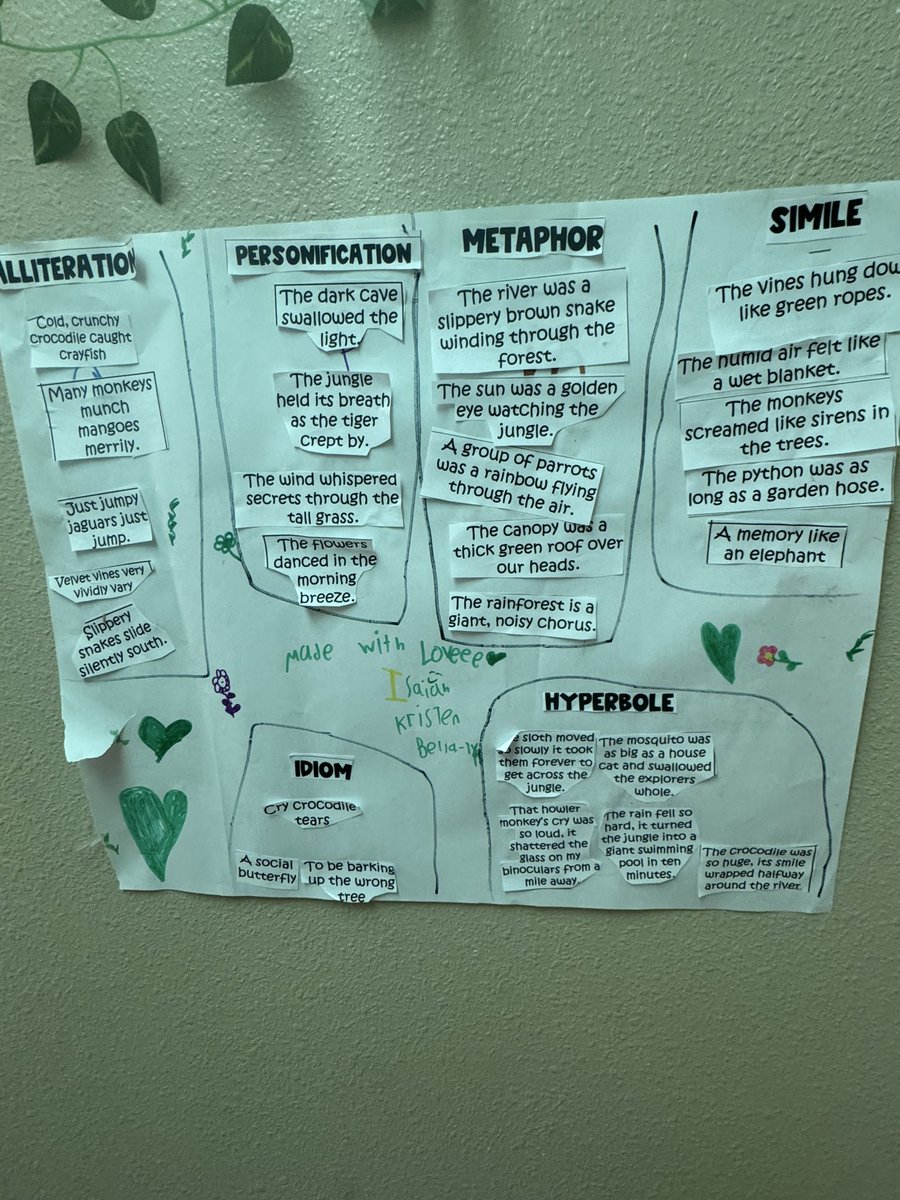 ALLITERATION
Cold, crunchy
crocodile caught
crayfish
Many monkeys
munch
mangoes
merrily.
Just jumpy
jaguars just
jump.
Velvet vines very
vividly vary
Slippery
snakes slide
silently south.
PERSONIFICATION
The dark cave
swallowed the
light.
The jungle
held its breath
as the tiger
crept by.
The wind whispered
secrets through the
tall grass.
The flowers
danced in the
morning
breeze.
METAPHOR
The river was a
slippery brown snake
winding through the
forest.
The sun was a golden
eye watching the
jungle.
A group of parrots
was a rainbow flying
through the air.
The canopy was a
thick green roof over
our heads.
The rainforest is a
giant, noisy chorus.
SIMILE
The vines hung dow
like green ropes.
The humid air felt like
a wet blanket.
The monkeys
screamed like sirens in
the trees.
The python was as
long as a garden hose.
A memory like
an elephant
made with Loveee
Isaiah
Kristen
IDIOM
Cry crocodile
tears
A social
butterfly
To be barking
up the wrong
tree
HYPERBOLE
e sloth moved
so slowly it took
them forever to
get across the
jungle.
The mosquito was
as big as a house
cat and swallowed
the explorers
whole.
That howler
monkey's cry was
so loud, it
shattered the
glass on my
binoculars from a
mile away.
The rain fell so
hard, it turned
the jungle into a
giant swimming
pool in ten
minutes.
The crocodile was
so huge, its smile
wrapped halfway
around the river.